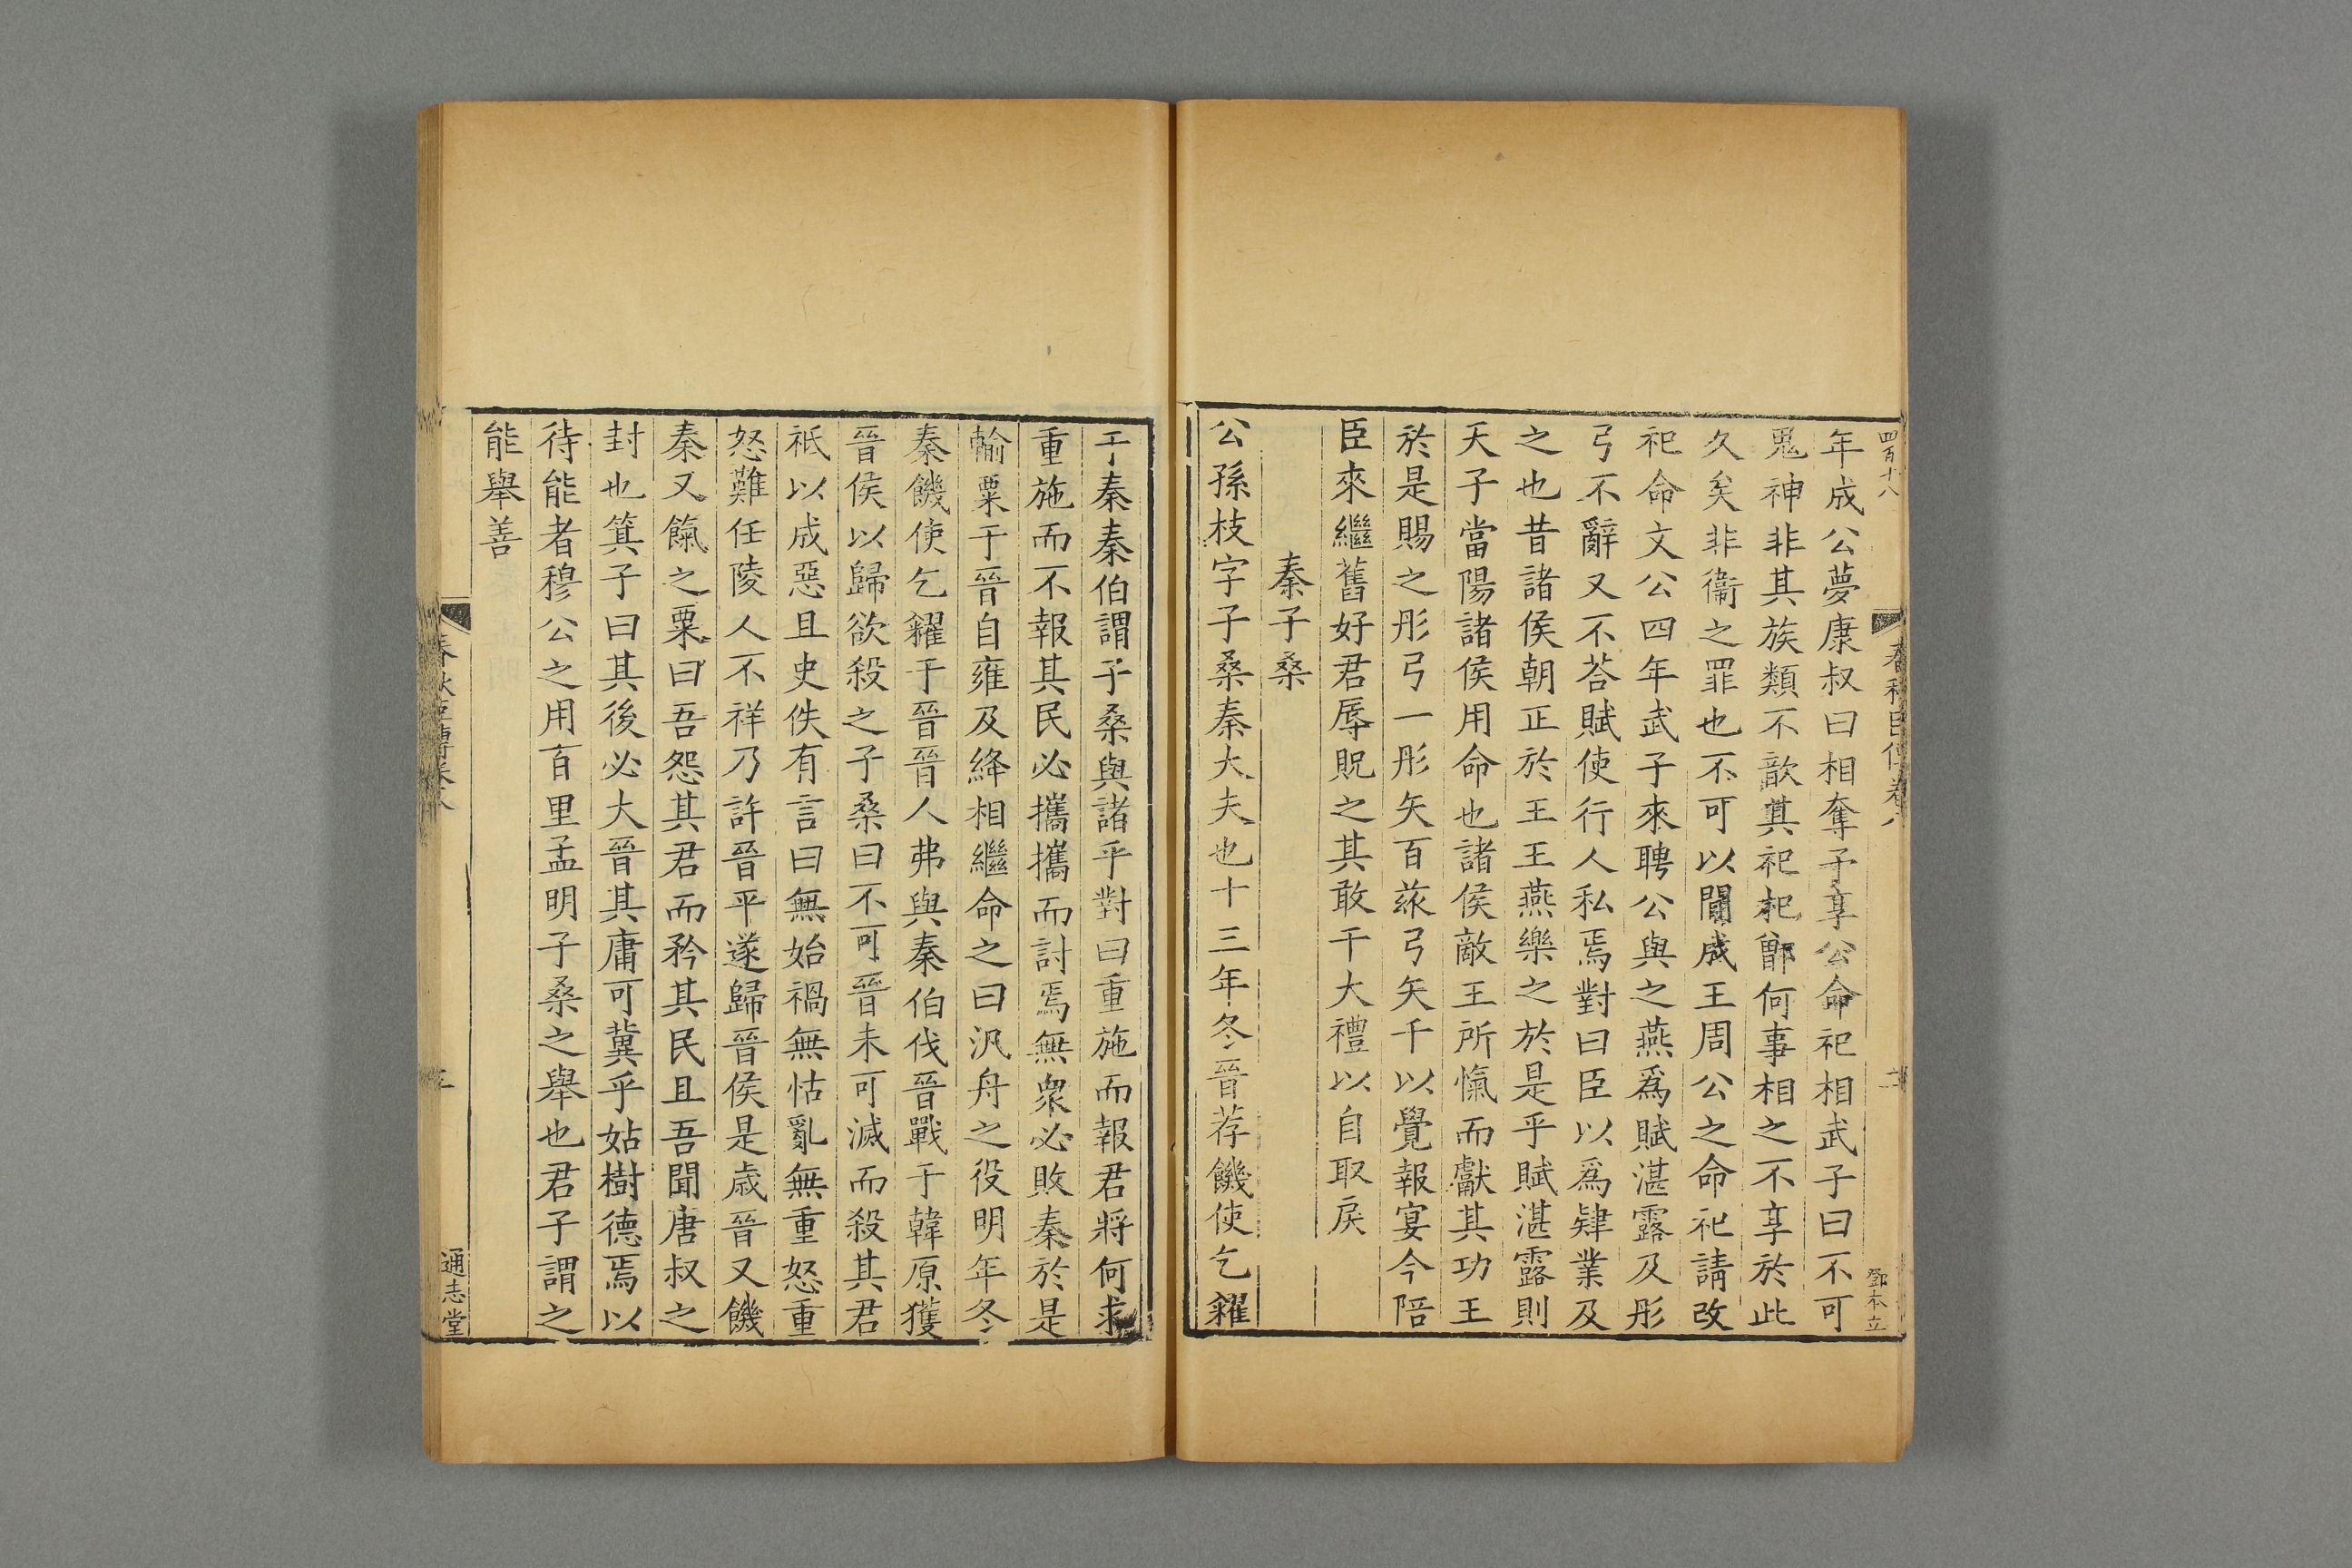 四百十八
鄧本立
年成公夢康叔曰相奪予享公命祀相武子曰不可
鬼神非其族類不歆其祀杞鄫何事相之不享於此
久矣非衞之罪也不可以閒成王周公之命祀請改
祀命文公四年武子來聘公與之燕爲賦湛露及彤
弓不辭又不荅賦使行人私焉對曰臣以爲肄業及
之也昔諸侯朝正於王王燕樂之於是乎賦湛露則
天子當陽諸侯用命也諸侯敵王所愾而獻其功王
於是賜之彤弓一彤矢百玈弓矢千以覺報宴今陪
臣來繼舊好君辱貺之其敢干大禮以自取戾
秦子桑
公孫枝字子桑秦大夫也十三年冬晉荐饑使乞糴
于秦秦伯謂子桑與諸乎對曰重施而報君將何求
重施而不報其民必攜攜而討焉無衆必敗秦於是
輸粟于晉自雍及絳相繼命之曰汎舟之役明年冬
秦饑使乞糴于晉晉人弗與秦伯伐晉戰于韓原獲
晉侯以歸欲殺之子桑曰不可晉未可滅而殺其君
祇以成惡且史佚有言曰無始禍無怙亂無重怒重
怒難任陵人不祥乃許晉平遂歸晉侯是歲晉又饑
秦又餼之粟曰吾怨其君而矜其民且吾聞唐叔之
封也箕子曰其後必大晉其庸可冀乎姑樹德焉以
待能者穆公之用百里孟明子桑之舉也君子謂之
能舉善
通志堂